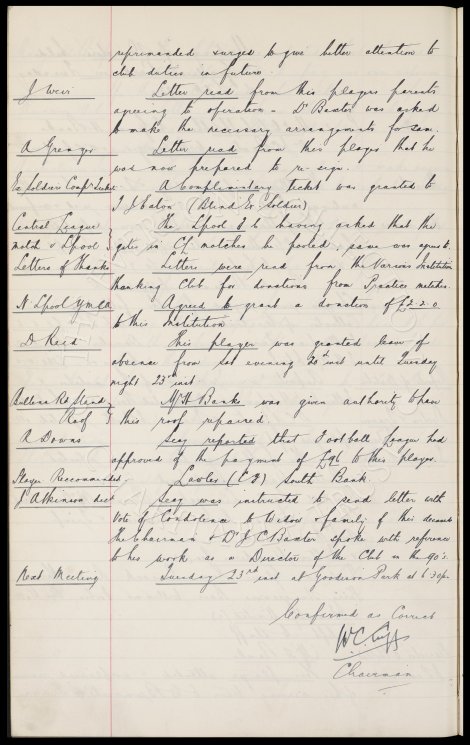 reprimanded & urged to give better attention to
club duties in future.
J Weir Letter read from this players parents
agreeing to operation - Dr Baxter was asked
to make the necessary arrangements for same.
A Grenyer Letter read from this player that he
was now prepared to re-sign.
Ex Soldier Comp Ticket A Complimentary ticket was granted to
T J Eaton (Blind Ex Soldier)
Central League The Lpool F C having asked that the
match v Lpool gates in CL matches be pooled, same was agreed to.
Letters of Thanks Letters were read from the Various Institutions
thanking Club for donations from Practice matches.
N Lpool YMCA Agreed to grant a donation of £2-2-0
to this Institution
D Reid This player was granted leave of
absence from Sat evening 20th inst until Tuesday
night 23rd inst
Bullens Rd Stand Mr H Banks was given authority to have
Roof this roof repaired.
R Downs Secy reported that Football League had
approved of the payment of to this player.
Player Recommended Lawler (CF) South Bank.
J Atkinson decd Secy was instructed to send letter with
Vote of Condolence to Widow & family of this deceased
The Chairman & Dr J C Baxter spoke with reference
to his work as a Director of the Club in the 90's.
Next Meeting Tuesday 23rd inst at Goodison Park at 6.30pm
Confirmed as Correct
W.C. Cuff
Chairman